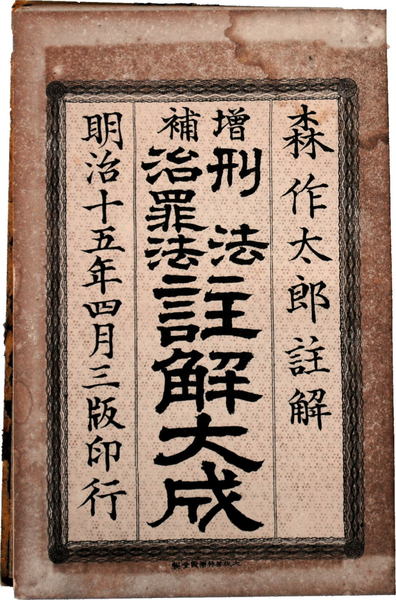 森作太郎註解
増補
刑法
治罪法
註解大成
明治十五年四月三版印行